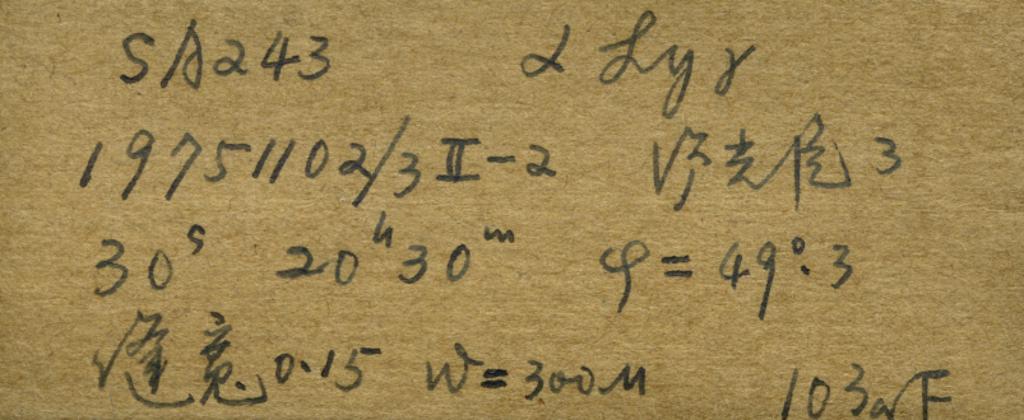 SA243 α Lyr
19751102/3 II-2 光 3
30ˢ 20ʰ30ᵐ φ=49°.3
缝宽 0.15 W=300μ 103aF